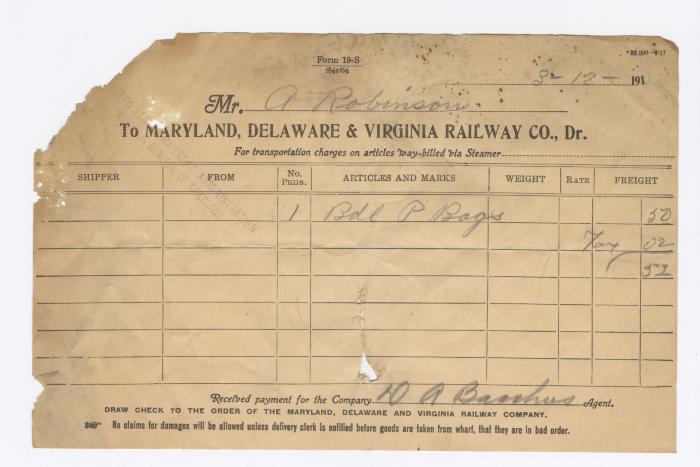 Form 19-S
20,000-8-17
3-12- 191
Mr. A Robinson
To MARYLAND, DELAWARE & VIRGINIA RAILWAY CO., Dr.
For transportation charges on articles way-billed via Steamer
SHIPPER FROM No. PKGS. ARTICLES AND MARKS WEIGHT RATE FREIGHT
1 Bdl P Bags 50
Tax 02
52
Received payment for the Company D A Bacchus Agent.
DRAW CHECK TO THE ORDER OF THE MARYLAND, DELAWARE AND VIRGINIA RAILWAY COMPANY.
No claims for damages will be allowed unless delivery clerk is notified before goods are taken from wharf, that they are in bad order.